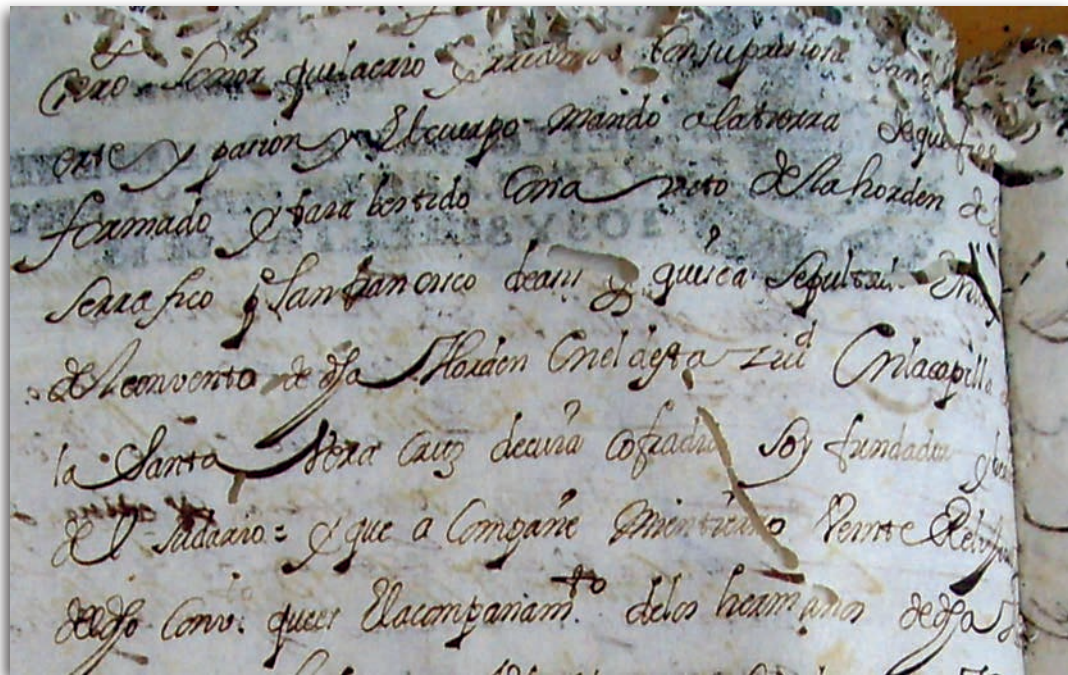 señor que la crio y rredimio con su preciosa
erte y pacion y El cuerpo mando a la tierra de que fue
formado y baia bestido Con a vito de la horden de
serrafico p.e San francisco de asis y que sea sepultado En
del convento de dha Horden Enel desta zud En la capilla
la Santa Vera Cruz de cuia cofradia soy fundador y her
del Sudario = y que a Compañe mi entierro Veinte Relixi
del dho Conv.to que es El acompañam.to de los hermanos de dha